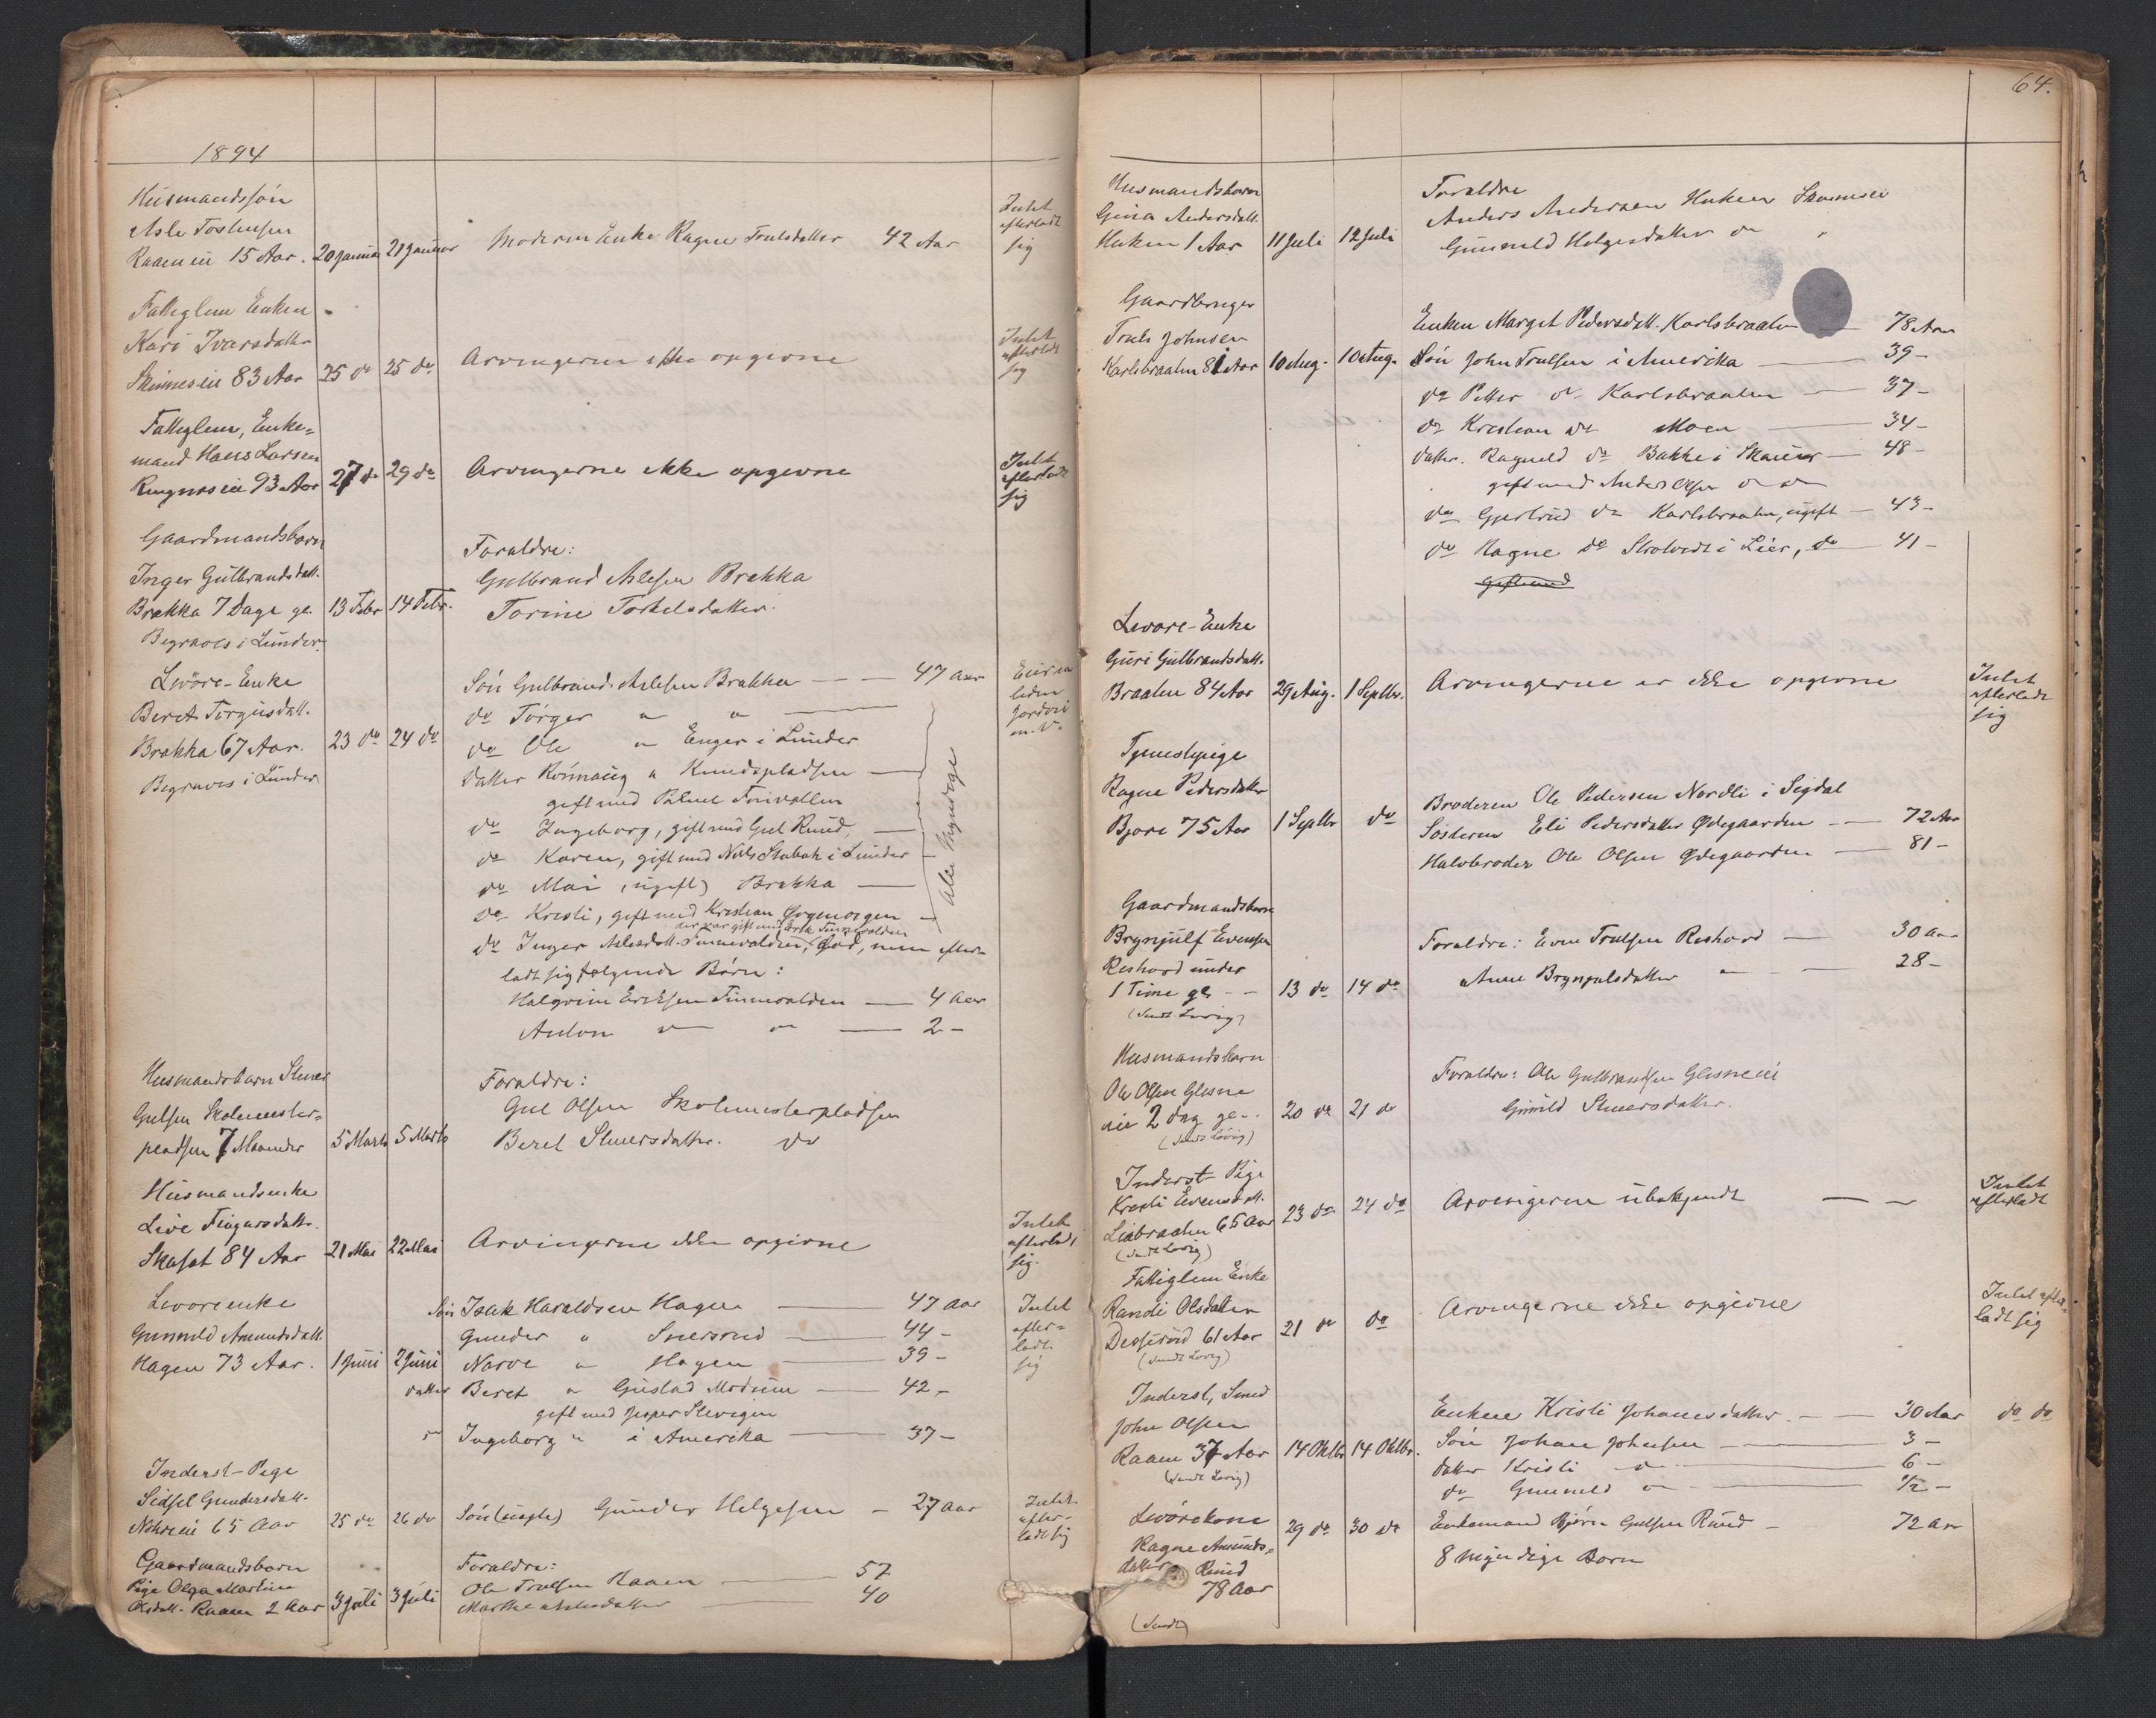 1894
Husmandssøn
Asle Tostensen
Raaen eie 15 Aar. 20 Januar 21 Januar Moderen Enke Ragne Trulsdatter 42 Aar Intet efterladt sig
Fattiglem Enken
Kari Ivarsdatter
Skinnes eie 83 Aar 25 do 25 do Arvingerne ikke opgivne Intet efterladt sig
Fattiglem, Enke=
mand Hans Larsen
Ringnes eie 93 Aar 27 do 29 do Arvingerne ikke opgivne Intet efterladt sig
Gaardmandsbarn
Inger Gulbrandsdatt.
Brakka 7 Dage gl. 13 Febr 14 Febr.
Begraves i Lunder
Foraldre:
Gulbrand Aslesen Brakka
Torine Torkelsdatter.
Livøre-Enke
Beret Torgusdatt.
Brakka 67 Aar. 23 do 24 do
Begraves i Lunder
Søn Gulbrand Aslesen Brakka — 47 Aar
do Torger " "
do Ole " Enger i Lunder
Datter Rønnaug " Knudspladsen
gift med
do Ingeborg, gift med Gul Ruud,
do Karen, gift med Nils Stubak i Lunder
do Mari (ugift) Brakka
do Kristi, gift med Kristian
do Inger Aslesdatt. Finnevolden, død, men efter=
ladt sig følgende Børn:
Halgrim Eriksen Finnevolden — 4 Aar
Anton " " — 2 —
Alle Myndige
Husmandsbarn Stener
Gulsen Skolemester=
pladsen 7 Maaneder 5 Marts 5 Marts
Foraldre:
Gul Olsen Skolemesterpladsen
Beret Stenersdatter. do
Husmandsenke
Live Fingarsdatter.
Skafat 84 Aar 21 Mai 22 Mai Arvingerne ikke opgivne Intet efterladt sig.
Livøreenke
Gunnild Amundsdatt.
Hagen 73 Aar. 1 Juni 2 Juni
Søn Isak Haraldsen Hagen — 47 Aar
Gunder " Snersrud — 44 —
Narve " Hagen — 39 —
Datter Beret " Gustad Modum — 42 —
gift med Jesper Stevigen
" Ingeborg " i Amerika — 37 —
Intet efter= ladt sig
Inderst-Pige
Sidsel Gundersdatt.
65 Aar 25 do 26 do Søn (uægte) Gunder Helgesen — 27 Aar Intet efter= ladt sig
Gaardmandsbarn
Pige Olga Martine
Olsdatt. Raaen 2 Aar 3 Juli 3 Juli
Foraldre:
Ole Trulsen Raaen — 57
Marthe Aslesdatter — 40
64.
Husmandsbarn
Gina Andersdatt.
Huken 1 Aar 11 Juli 12 Juli
Foraldre
Anders Andersen Huken
Gunneld Helgesdatter do "
Gaardbruger
Truls Johnsen
Karlsbraaten 81 Aar 10 Aug. 10 Aug.
Enken Margit Pedersdatt. Karlsbraaten — 78 Aar
Søn John Trulsen i Amerika — 39 —
do Petter do Karlsbraaten — 37 —
do Kristian do Moen — 34 —
Datter. Ragneld do Bakke i — 48 —
gift med Anders Olsen do do
do Gjertrud do Karlsbraaten, ugift — 43 —
do Ragne do i Lier, do — 41 —
gift med
Livøre-Enke
Guri Gulbrandsdatt.
Braaten 84 Aar 29 Aug. 1 Septbr. Arvingerne er ikke opgivne Intet efterladt sig
Tjenestepige
Ragne Pedersdatter
Bjøre 75 Aar 1 Septbr do
Broderen Ole Pedersen Nordli i Sigdal
Søsteren Eli Pedersdatter Ødegaarden — 72 Aar
Halvbroder Ole Olsen Ødegaarden — 81 —
Gaardmandsbarn
Brynjulf Evensen
Rishovd under
1 Time gl — 13 do 14 do
(Sendt Lovig)
Foraldre: Even Trulsen Rishovd — 30 Aar
Anne Brynjulsdatter " — 28 —
Husmandsbarn
Ole Olsen Glesne
eie 2 dag gl. 20 do 21 do
(Sendt Lovig)
Foraldre: Ole Gulbrandsen Glesne eie
Gunild Stenersdatter.
Inderst Pige
Kristi Evensdatt.
Liabraaten 65 Aar 23 do 24 do Arvingerne ubekjendt — — Intet efterladt
(Sendt Lovig)
Fattiglem Enke
Randi Olsdatter
61 Aar 21 do do Arvingerne ikke opgivne Intet efter= ladt sig
(Sendt Lovig)
Inderst, Smed
John Olsen
Raaen 37 Aar 14 Oktbr 14 Oktbr.
(Sendt Lovig)
Enken Kristi Johannesdatter. — 30 Aar do do
Søn Johan Johnsen — 3 —
Datter Kristi do — 6 —
do Gunneld do — 1/2 —
Livørekone
Ragne Amunds=
datter Ruud
78 Aar 29 do 30 do
(Sendt)
Enkemand Bjørn Gulsen Ruud — 72 Aar
8 Myndige Børn